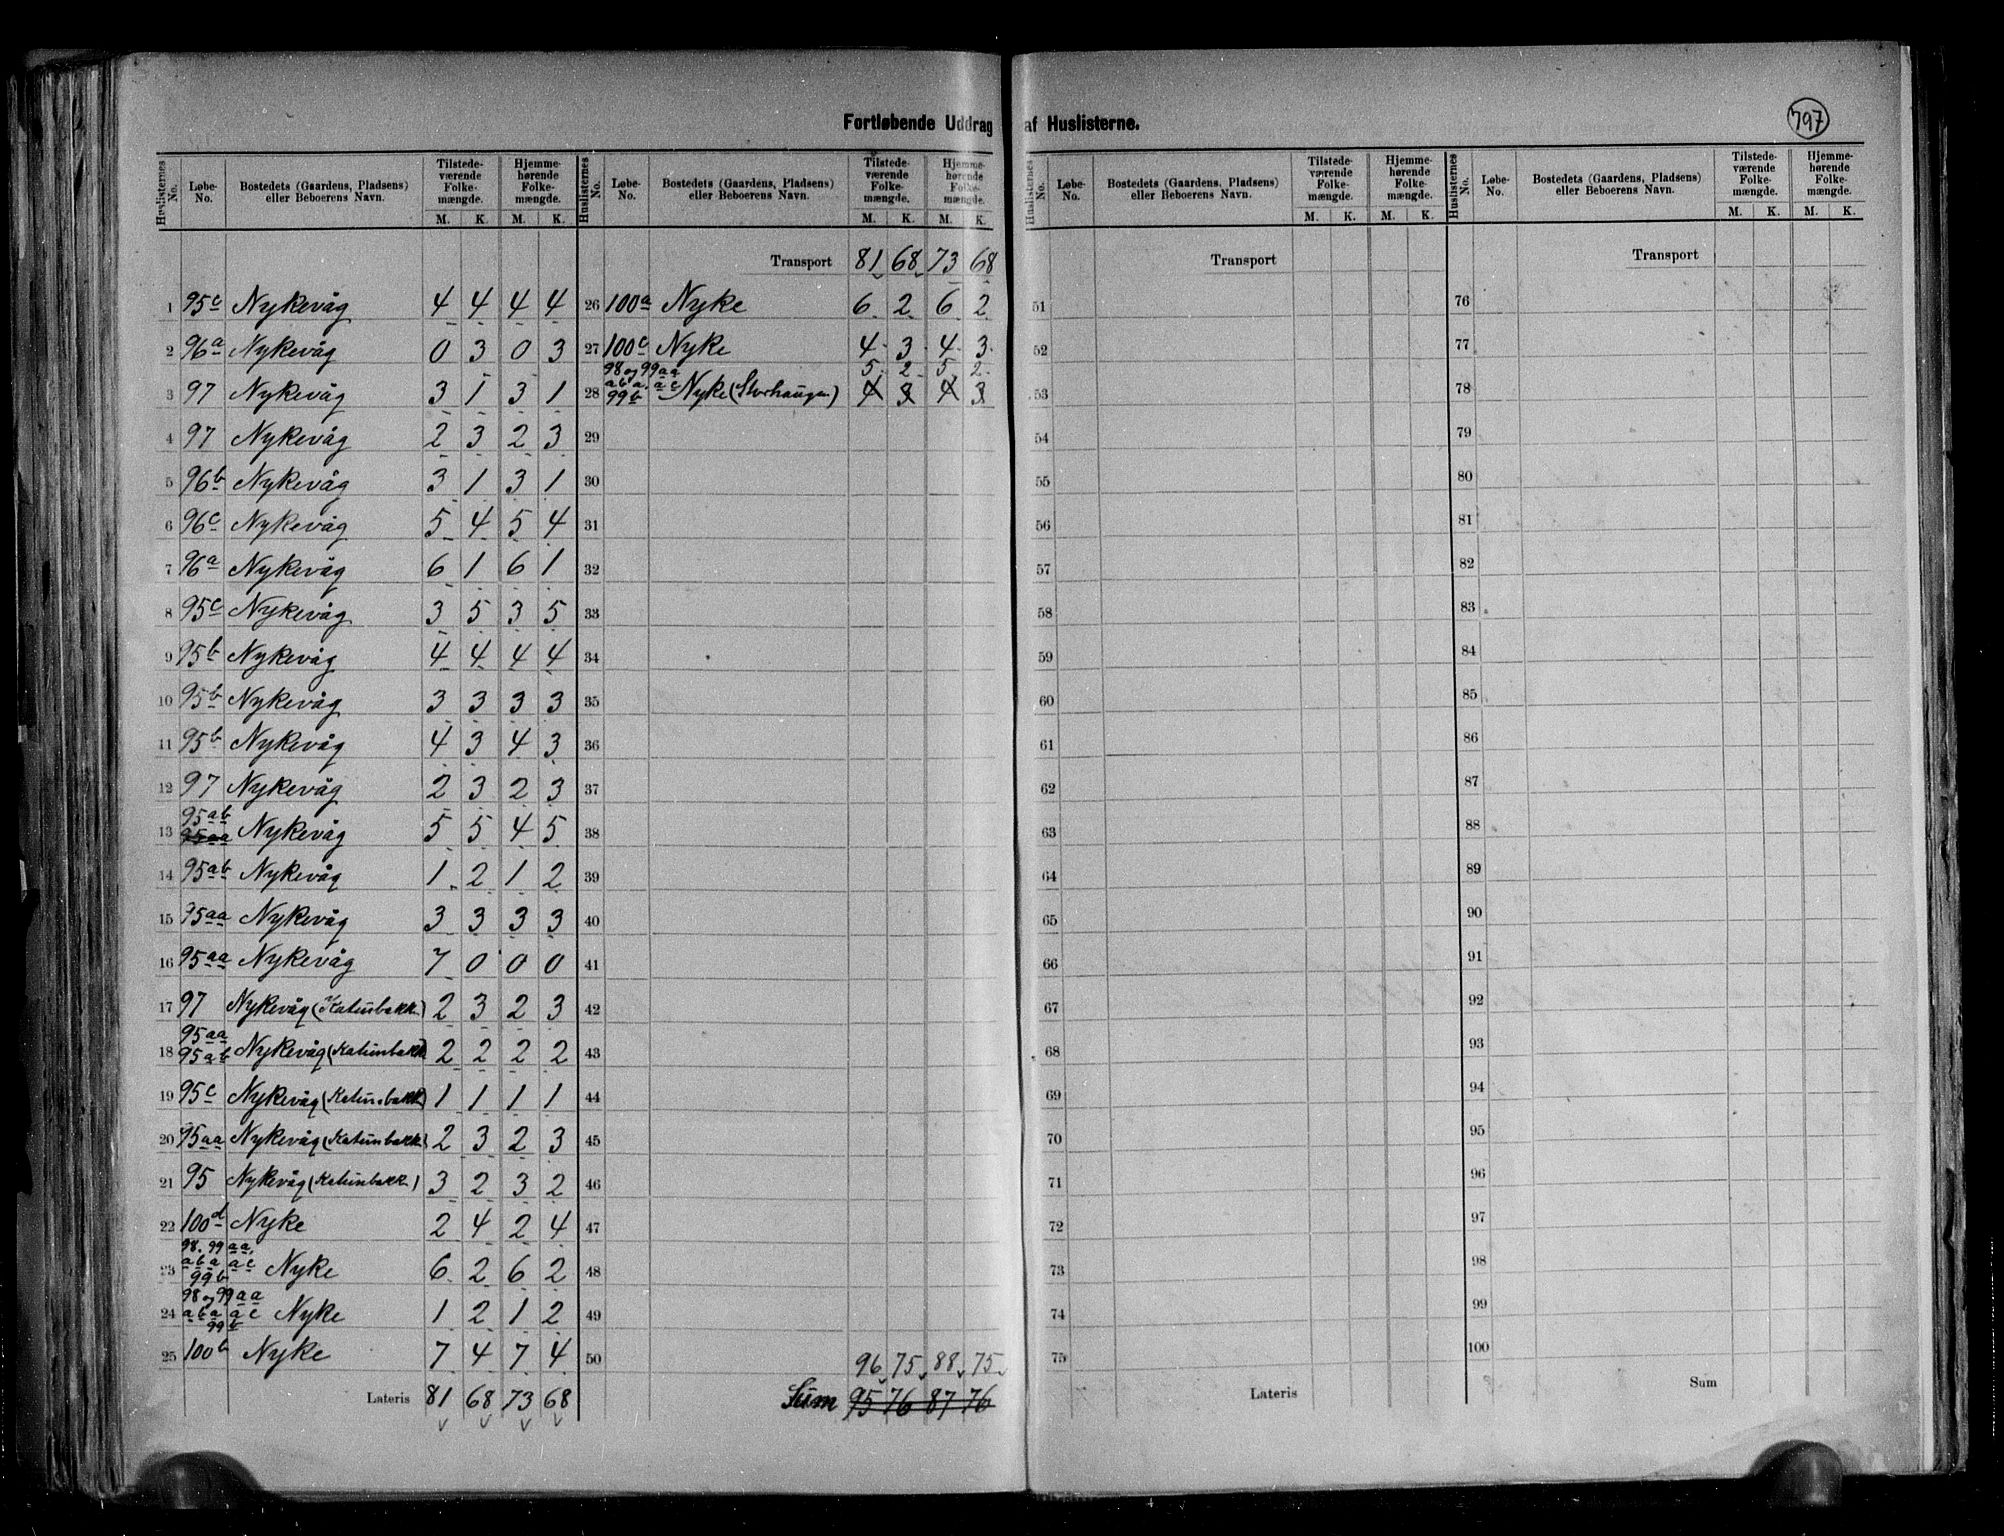 Fortløbende Uddrag af Huslisterne.
797
Huslisternes No. Løbe-No. Bostedets (Gaardens, Pladsens) eller Beboerens Navn. Tilstedeværende Folkemængde. M. K. Hjemmehørende Folkemængde. M. K.
1 95c Nykevåg 4 4 4 4
2 96a Nykevåg 0 3 0 3
3 97 Nykevåg 3 1 3 1
4 97 Nykevåg 2 3 2 3
5 96b Nykevåg 3 1 3 1
6 96c Nykevåg 5 4 5 4
7 96a Nykevåg 6 1 6 1
8 95c Nykevåg 3 5 3 5
9 95b Nykevåg 4 4 4 4
10 95b Nykevåg 3 3 3 3
11 95b Nykevåg 4 3 4 3
12 97 Nykevåg 2 3 2 3
95ab
13 95aa Nykevåg 5 5 4 5
14 95ab Nykevåg 1 2 1 2
15 95aa Nykevåg 3 3 3 3
16 95aa Nykevåg 7 0 0 0
17 97 Nykevåg (Katunbakk.) 2 3 2 3
95aa
18 95ab Nykevåg (Katunbakk 2 2 2 2
19 95c Nykevåg (Katunbakk) 1 1 1 1
20 95aa Nykevåg (Katunbakk) 2 3 2 3
21 95 Nykevåg (Katunbakk.) 3 2 3 2
22 100d Nyke 2 4 2 4
98. 99aa.
23 aba ac Nyke 6 2 6 2
99b
98 og 99aa
24 aba ac Nyke 1 2 1 2
99b
25 100b Nyke 7 4 7 4
Lateris 81 68 73 68
Huslisternes No. Løbe-No. Bostedets (Gaardens, Pladsens) eller Beboerens Navn. Tilstedeværende Folkemængde. M. K. Hjemmehørende Folkemængde. M. K.
Transport 81 68 73 68
26 100a Nyke 6 2 6 2
27 100c Nyke 4 3 4 3
98 og 99aa 5 2 5 2
28 aba. ac Nyke (Storhaugen) 4 3 4 3
99b
29
30
31
32
33
34
35
36
37
38
39
40
41
42
43
44
45
46
47
48
49
50
96 75 88 75
Sum 95 76 87 76
Huslisternes No. Løbe-No. Bostedets (Gaardens, Pladsens) eller Beboerens Navn. Tilstedeværende Folkemængde. M. K. Hjemmehørende Folkemængde. M. K.
Transport
51
52
53
54
55
56
57
58
59
60
61
62
63
64
65
66
67
68
69
70
71
72
73
74
75
Lateris
Huslisternes No. Løbe-No. Bostedets (Gaardens, Pladsens) eller Beboerens Navn. Tilstedeværende Folkemængde. M. K. Hjemmehørende Folkemængde. M. K.
Transport
76
77
78
79
80
81
82
83
84
85
86
87
88
89
90
91
92
93
94
95
96
97
98
99
100
Sum